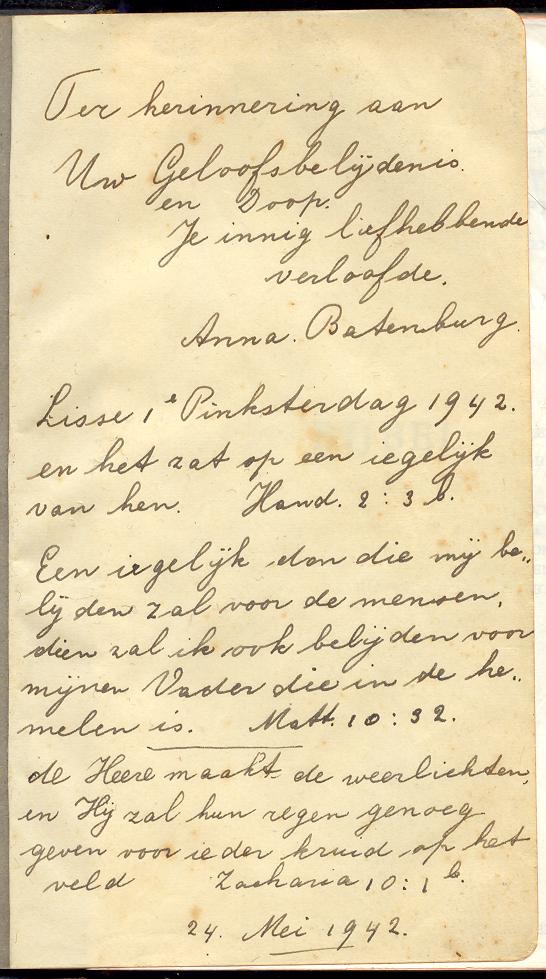 Ter herinnering aan
Uw Geloofsbelijdenis.
en Doop.
Je innig liefhebbende
verloofde.
Anna. Batenburg.
Lisse 1e Pinksterdag 1942.
en het zat op een iegelijk
van hen. Hand. 2:3 b.
Een iegelijk dan die mij be„
lijden zal voor de mensen,
dien zal ik ook belijden voor
mijnen Vader die in de he„
melen is. Matt. 10:32.
de Heere maakt de weerlichten,
en Hij zal hun regen genoeg
geven voor ieder kruid op het
veld Zacharia 10:1 b.
24. Mei 1942.